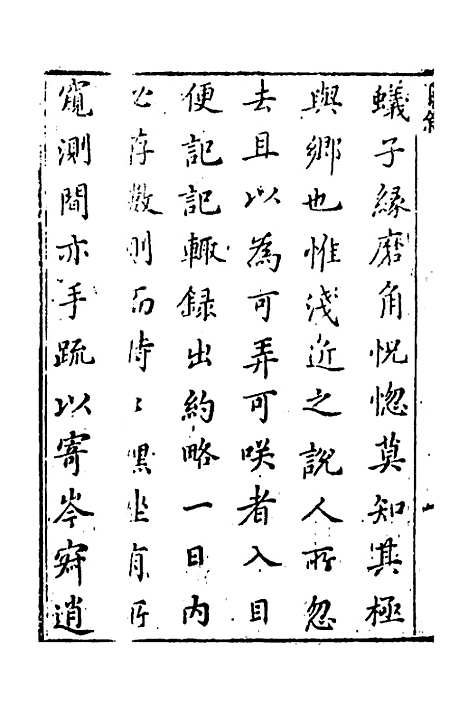 蟻子緣磨角怳惚莫知其極
與鄉也惟淺近之說人所忽
去且以為可弄可咲者入目
便記記輒錄出約略一日內
必存數則而時〻默坐有所
窺測間亦手疏以寄岑寂逍